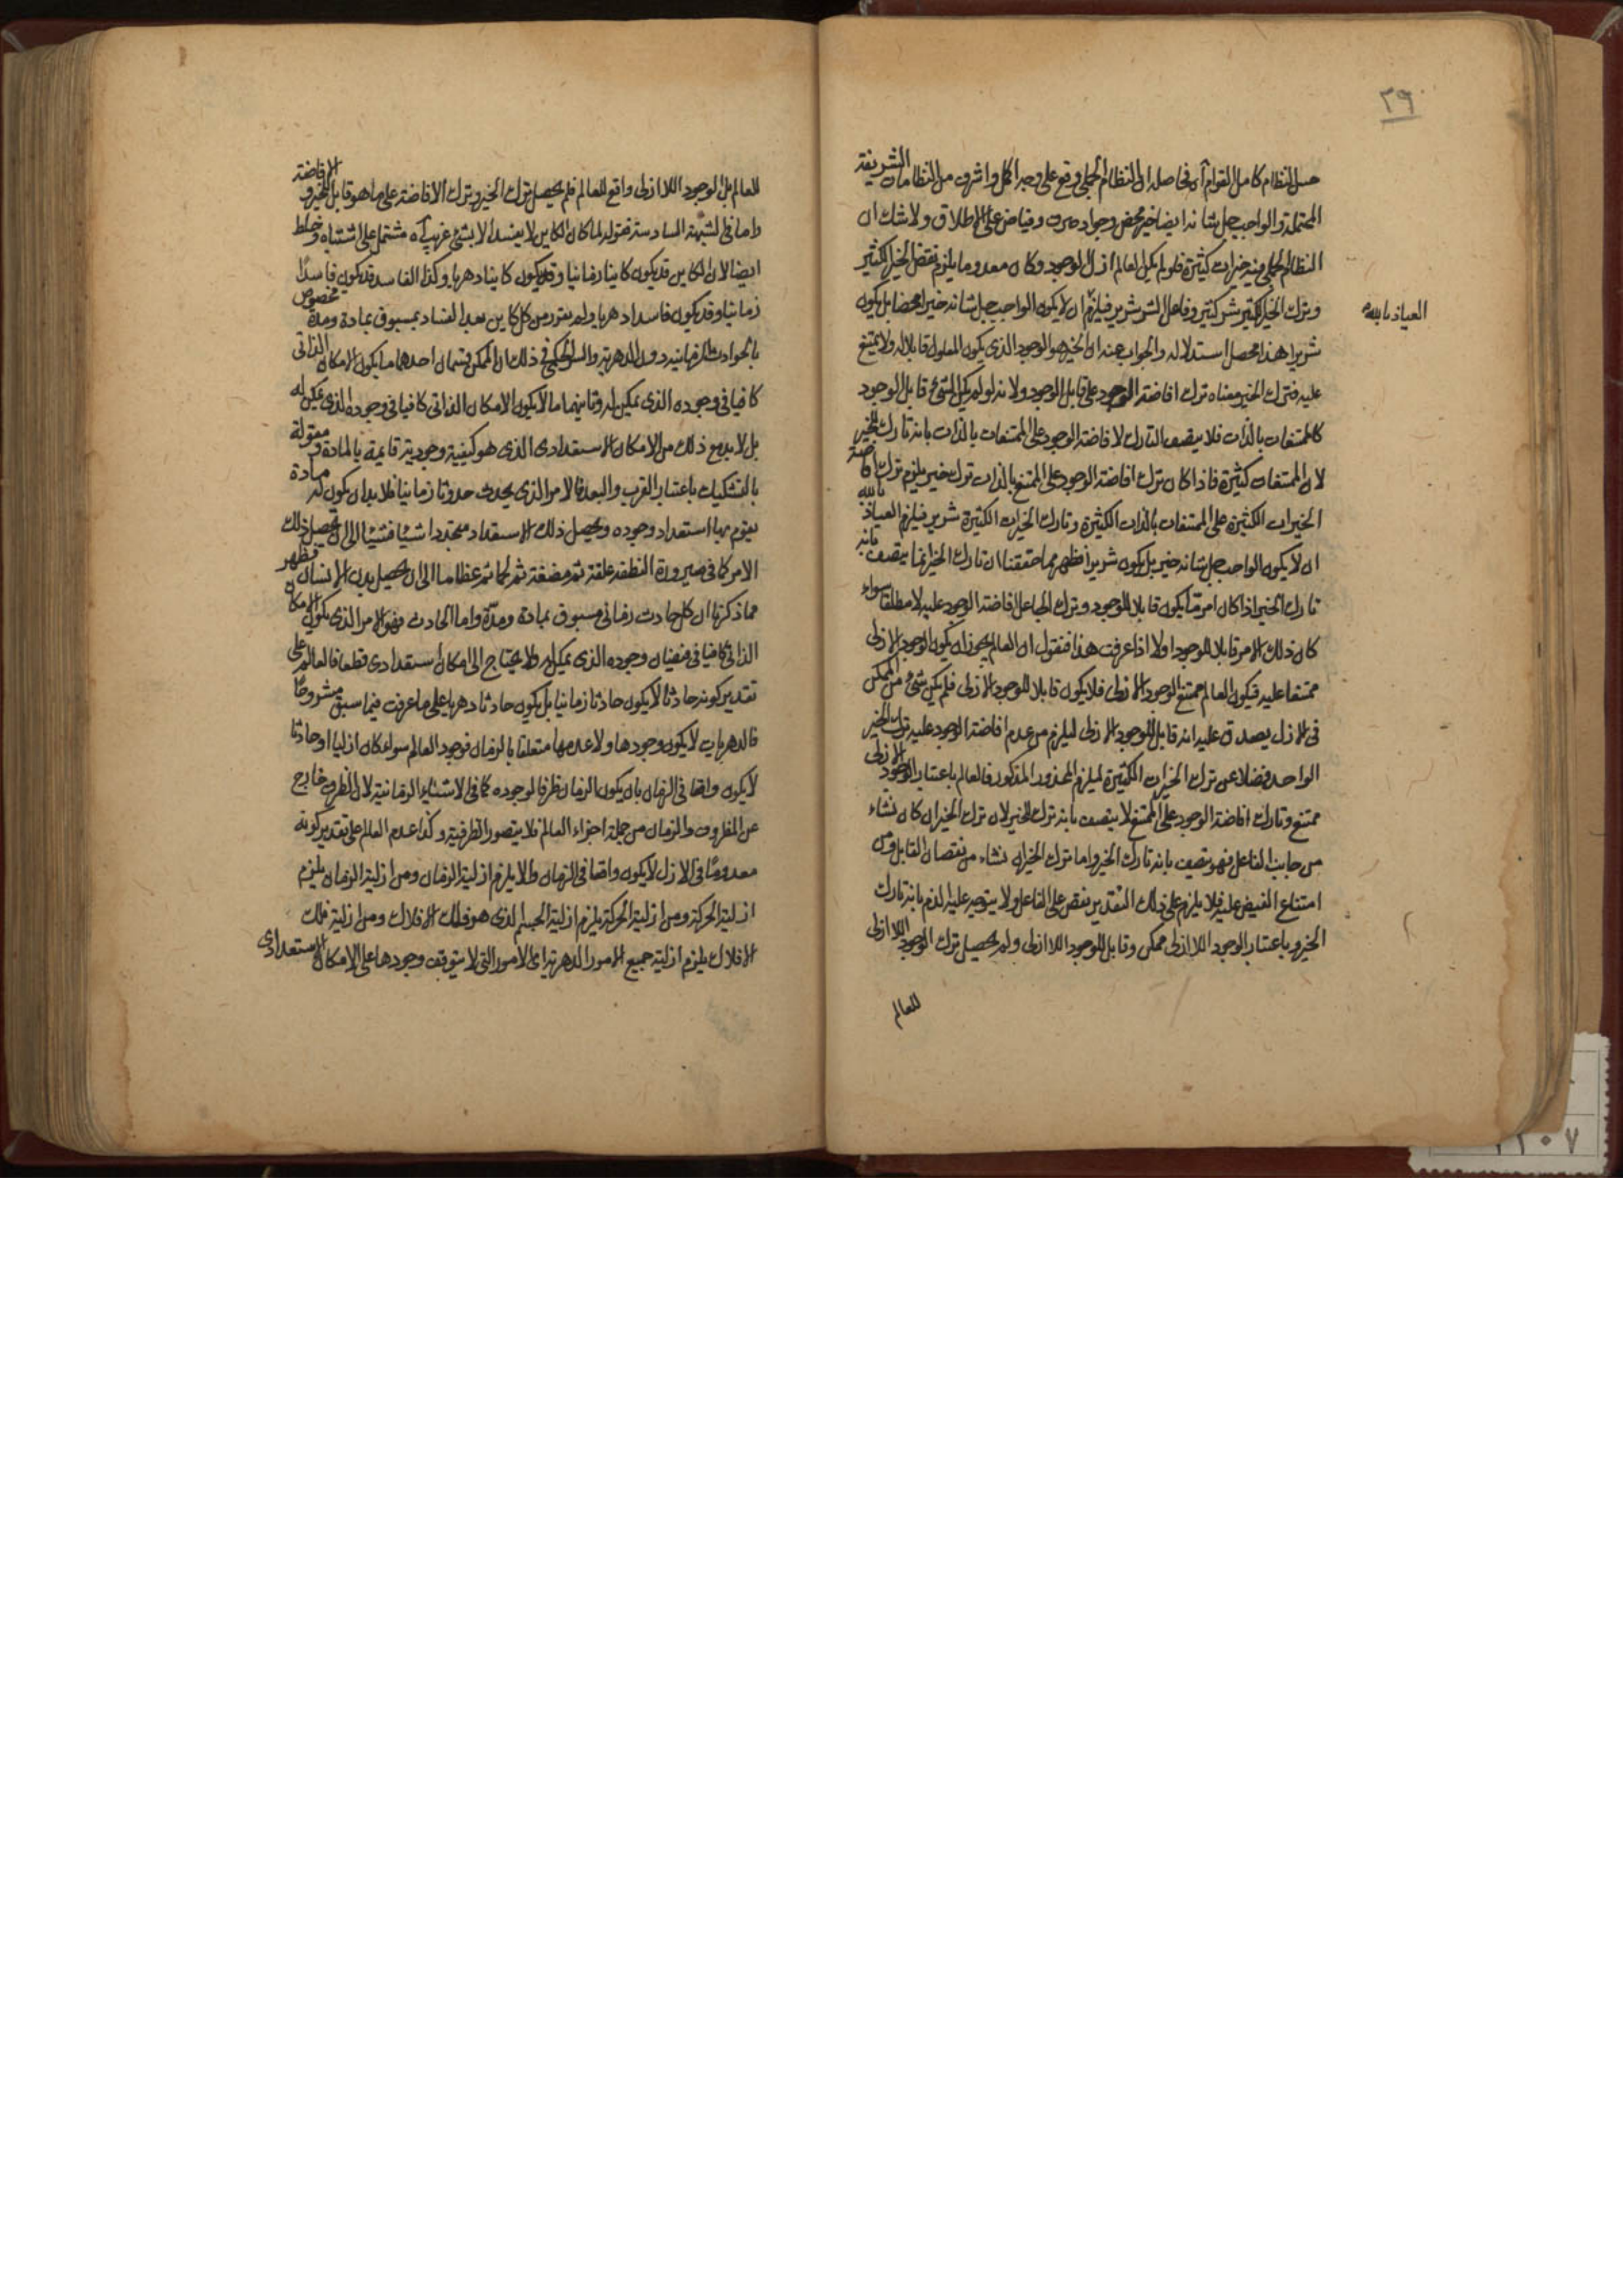 ٢٩
حسن النظام كامل القوام آه فحاصله ان النظام الجملي وقع على وجه اكمل واشرف من النظامات الشريفة
المحتملة والواجب جل شانه ايضا خير محض وجواد صرف وفياض على الاطلاق ولا شك ان
النظام الجملي فيه خيرات كثيرة فلو لم يكن العالم ازلى الوجود وكان معدوما يلزم نقض الخير الكثير
وترك الخير الكثير شر كثير وفاعل الشر شرير فيلزم ان لا يكون الواجب جل شانه خيرا محضا بل يكون
العياذ بالله
شريرا هذا محصل استدلاله والجواب عنه ان الخير هو الوجود الذي يكون المعلول قابلا له ولا يمتنع
عليه فترك الخير معناه ترك افاضة الوجود على قابل الوجود ولانه لو لم يكن الشئ قابل الوجود
كالممتنعات بالذات فلا يتصف التارك لافاضة الوجود على الممتنعات بالذات بانه تارك للخير
لان الممتنعات كثيرة فاذا كان ترك افاضة الوجود على الممتنع بالذات ترك خير يلزم ترك افاضة
الخيرات الكثيرة على الممتنعات بالذات الكثيرة وتارك الخيرات الكثيرة شرير فيلزم العياذ بالله
ان لا يكون الواجب جل شانه خير بل يكون شريرا فظهر مما حققنا ان تارك الخير انما يتصف بانه
تارك الخير اذا كان امر ما يكون قابلا للوجود وترك الجاعل افاضة الوجود عليه لا مطلقا سواء
كان ذلك الامر قابلا للوجود اولا اذا عرفت هذا فنقول ان العالم يجوز ان يكون الوجود الازلى
ممتنعا عليه فيكون العالم ممتنع الوجود الازلى فلا يكون قابلا للوجود الازلى فلم يكن شئ من الممكن
في الازل يصدق عليه انه قابل للوجود الازلى ليلزم من عدم افاضة الوجود عليه ترك الخير
الواحد فضلا عن ترك الخيرات الكثيرة ليلزم المحذور المذكور فالعالم باعتبار الوجود الازلى
ممتنع وتارك افاضة الوجود على الممتنع لا يتصف بانه ترك للخير لان ترك الخير ان كان نشاء
من جانب الفاعل فهو يتصف بانه تارك الخير واما ترك الخير ان نشاء من نقصان القابل ومن
امتناع الفيض عليه فلا يلزم على ذلك التقدير نقص على الفاعل ولا يتوجه عليه الذم بانه تارك
الخير وباعتبار الوجود اللاازلى ممكن وقابل للوجود اللاازلى ولم يحصل ترك الوجود اللاازلى
للعالم
للعالم بل الوجود اللاازلى واقع للعالم فلم يحصل ترك الخير وترك الافاضة على ما هو قابل للخير والافاضة
واما في الشبهة السادسة فقوله لما كان الكاين لا يفسد الا بشئ غريب آه مشتمل على اشتباه وخلط
ايضا لان الكاين قد يكون كاينا زمانيا وقد يكون كاينا دهريا وكذا الفاسد قد يكون فاسدا
زمانيا وقد يكون فاسدا دهريا ولم يقرر من كل كاين بعد الفساد بمسبوق بمادة ومدة مخصوص
بالحوادث الزمانية دون الدهرية والسر الحكمي في ذلك ان الممكن قسمان احدهما ما يكون الامكان الذاتى
كافيا في وجوده الذى يمكن له وثانيهما ما لا يكون الامكان الذاتى كافيا في وجوده الذى يمكن له
بل لا بد مع ذلك من الامكان الاستعدادى الذى هو كيفية وجودية قايمة بالمادة ومقولة
بالتشكيك باعتبار القرب والبعد فالامر الذى يحدث حدوثا زمانيا فلا بد ان يكون له مادة
يقوم بها استعداد وجوده ويحصل ذلك الاستعداد متجددا شيئا فشيئا الى ان يحصل ذلك
الامر كما في صيرورة النطفة علقة ثم مضغة ثم لحما ثم عظاما الى ان يحصل بدن الانسان فظهر
مما ذكرنا ان كل حادث زمانى مسبوق بمادة ومدة واما الحادث فهو الامر الذى يكون الامكان
الذاتى كافيا في فيضان وجوده الذى يمكن له ولا يحتاج الى امكان استعدادى قطعا فالعالم على
تقدير كونه حادثا لا يكون حادثا زمانيا بل يكون حادثا دهريا على ما عرفت فيما سبق مشروحا
فالدهريات لا يكون وجودها ولا عدمها متعلقا بالزمان فوجود العالم سواء كان ازليا او حادثا
لا يكون واقعا في الزمان بان يكون الزمان ظرفا لوجوده كما في الاشياء الزمانية لان الظرف خارج
عن المظروف والزمان من جملة اجزاء العالم فلا يتصور الظرفية وكذا عدم العالم على تقدير كونه
معدوما في الازل لا يكون واقعا في الزمان والا يلزم ازلية الزمان ومن ازلية الزمان يلزم
ازلية الحركة ومن ازلية الحركة يلزم ازلية الجسم الذى هو فلك الافلاك ومن ازلية فلك
الافلاك يلزم ازلية جميع الامور الدهرية اى الامور التى لا يتوقف وجودها على الامكان الاستعدادى